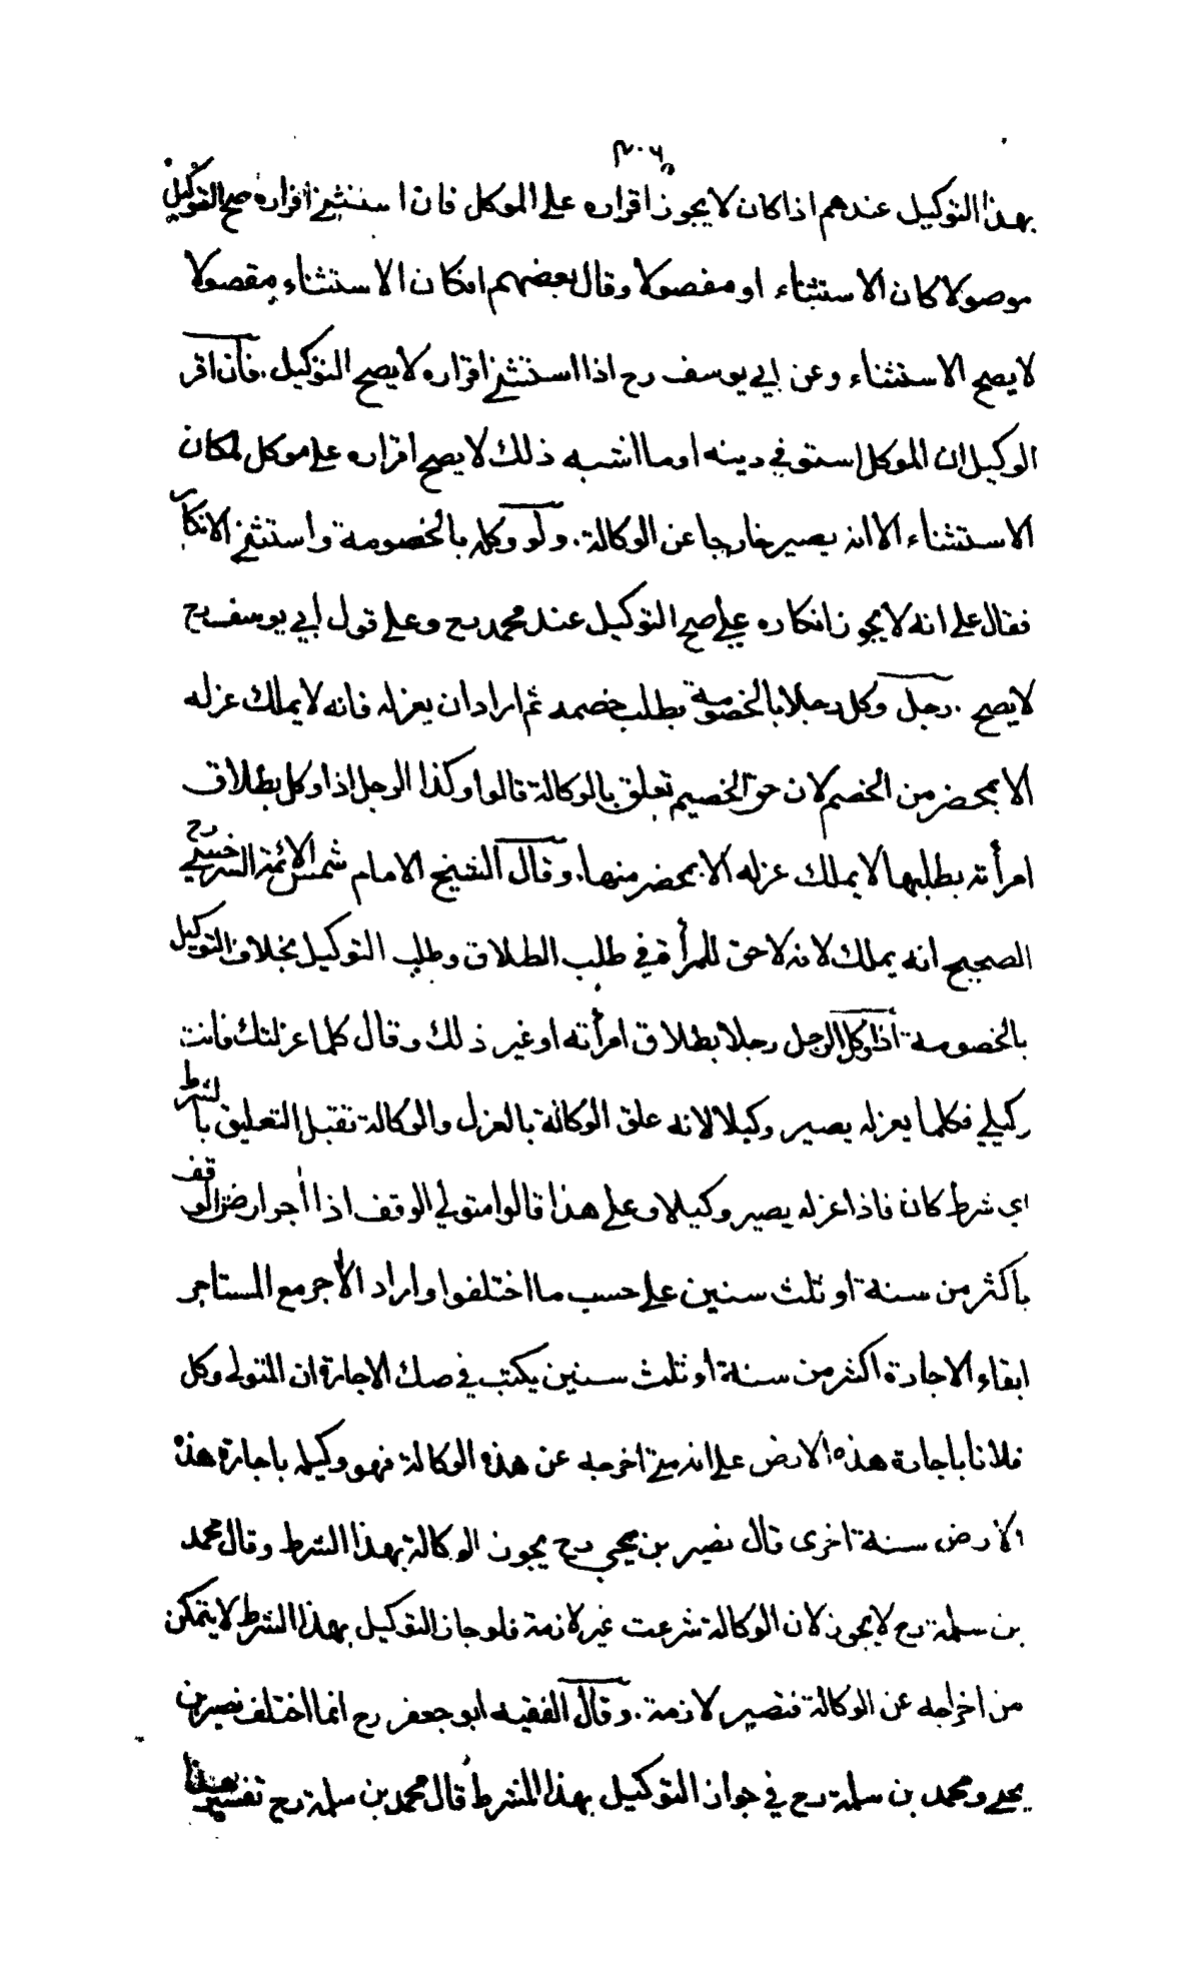 ٣٠٦
بهذا التوكيل عندهم اذا كان لا يجوز اقراره على الموكل فان استثنى اقراره صح التوكيل
موصولا كان الاستثناء او مفصولا وقال بعضهم انكان الاستثناء مفصولا
لا يصح الاستثناء وعن ابي يوسف رح اذا استثنى اقراره لا يصح التوكيل . فان اقر
الوكيل ان الموكل استوفي دينه او ما اشبه ذلك لا يصح اقراره على موكل لمكان
الاستثناء الا انه يصير خارجا عن الوكالة . ولو وكله بالخصومة واستثنى الانكار
فقال على انه لا يجوز انكاره علي صح التوكيل عند محمد رح وعلى قول ابي يوسف رح
لا يصح . رجل وكل رجلا بالخصومة بطلب خصمه ثم اراد ان يعزله فانه لا يملك عزله
الا بمحضر من الخصم لان حق الخصيم تعلق بالوكالة قالوا وكذا الرجل اذا وكل بطلاق
امرأته بطلبها لا يملك عزله الا بمحضر منها . وقال الشيخ الامام شمس الائمة السرخسي رح
الصحيح انه يملك لانه لا حق للمرأة في طلب الطلاق وطلب التوكيل بخلاف التوكيل
بالخصومة اذا وكل الرجل رجلا بطلاق امرأته او غير ذلك وقال كلما عزلتك فانت
وكيلي فكلما يعزله يصير وكيلا لانه علق الوكالة بالعزل والوكالة تقبل التعليق بالشرط
اي شرط كان فاذا عزله يصير وكيلا وعلى هذا قالوا متولي الوقف اذا أجر ارض الوقف
باكثر من سنة او ثلث سنين على حسب ما اختلفوا واراد الأجر مع المستاجر
ابقاء الاجارة اكثر من سنة او ثلث سنين يكتب في صك الاجارة ان المتولى وكل
فلانا باجارة هذه الارض على انه متى اخرجه عن هذه الوكالة فهو وكيله باجارة هذه
الارض سنة اخرى قال نصير بن يحيى رح يجوز الوكالة بهذا الشرط وقال محمد
بن سلمة رح لا يجوز لان الوكالة شرعت غير لازمة فلو جاز التوكيل بهذا الشرط لا يتمكن
من اخراجه عن الوكالة فتصير لازمة . وقال الفقيه ابو جعفر رح انما اختلف نصير بن
يحيى ومحمد بن سلمة رح في جواز التوكيل بهذا الشرط قال محمد بن سلمة رح تفسير